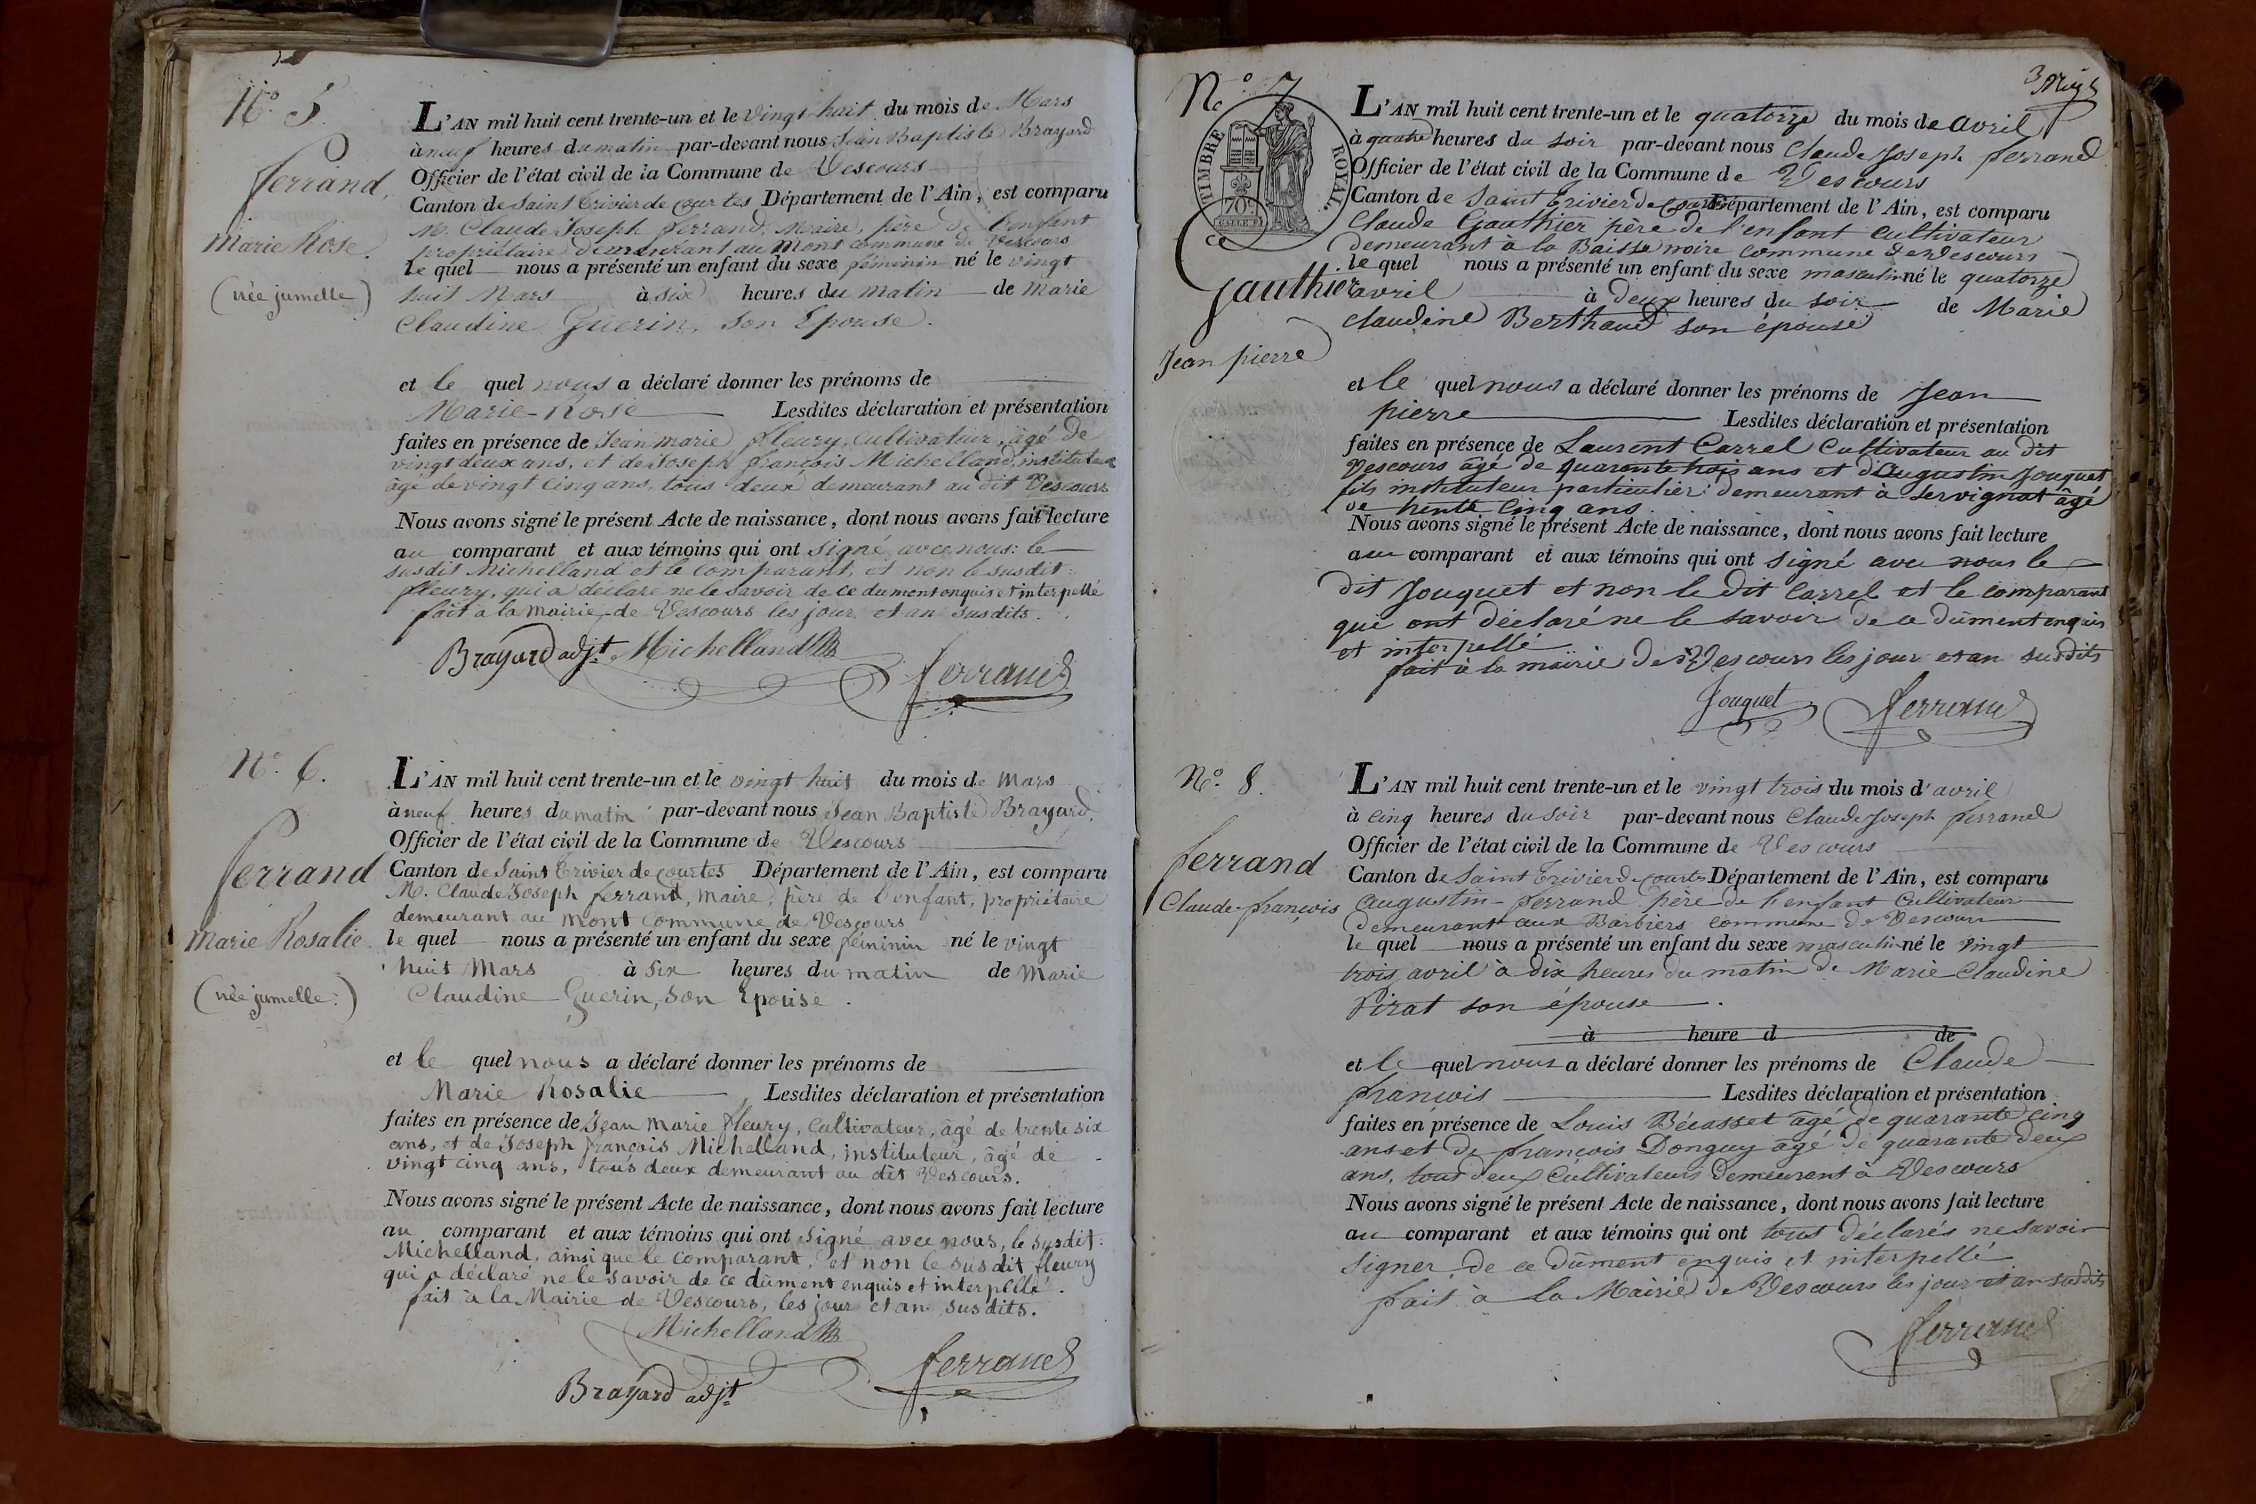 N.° 5.
ferrand,
Marie Rose.
(née jumelle)
L'AN mil huit cent trente-un et le vingt huit du mois de Mars
à neuf heures du matin par-devant nous Jean Baptiste Brayard
Officier de l'état civil de la Commune de Vescours
Canton de Saint Trivier de Courtes Département de l'Ain, est comparu
M. Claude Joseph ferrand, Maire, père de l'enfant
propriétaire demeurant au Mont commune de Vescours
le quel nous a présenté un enfant du sexe féminin né le vingt
huit Mars à six heures du matin de Marie
Claudine Guerin, son Epouse.
et le quel nous a déclaré donner les prénoms de
Marie-Rose Lesdites déclaration et présentation
faites en présence de Jean marie fleury, cultivateur, âgé de
vingt deux ans, et de Joseph françois Michelland, instituteur
âgé de vingt cinq ans, tous deux demeurant au dit Vescours
Nous avons signé le présent Acte de naissance, dont nous avons fait lecture
au comparant et aux témoins qui ont signé avec nous: le
susdit Michelland et le comparant, et non le susdit
fleury, qui a déclaré ne le savoir de ce dument enquis et interpellé
fait à la mairie de Vescours les jour et an susdits.
Brayard adjt Michelland
ferrand
N.° 6.
ferrand
Marie Rosalie
(née jumelle:)
L'AN mil huit cent trente-un et le vingt huit du mois de Mars
à neuf heures du matin par-devant nous Jean Baptiste Brayard,
Officier de l'état civil de la Commune de Vescours
Canton de Saint Trivier de courtes Département de l'Ain, est comparu
M. Claude Joseph ferrand, maire, père de l'enfant, propriétaire
demeurant au Mont commune de Vescours
le quel nous a présenté un enfant du sexe féminin né le vingt
huit Mars à six heures du matin de Marie
Claudine Guerin, son Epouse.
et le quel nous a déclaré donner les prénoms de
Marie Rosalie Lesdites déclaration et présentation
faites en présence de Jean Marie fleury, cultivateur, âgé de trente six
ans, et de Joseph françois Michelland, instituteur, âgé de
vingt cinq ans, tous deux demeurant au dit Vescours.
Nous avons signé le présent Acte de naissance, dont nous avons fait lecture
au comparant et aux témoins qui ont signé avec nous, le susdit:
Michelland, ainsi que le comparant, et non le susdit fleury
qui a déclaré ne le savoir de ce dûment enquis et interpellé.
fait à la Mairie de Vescours, les jour et an susdits.
Michelland
ferrand
Brayard adjt
N.° 7
TIMBRE ROYAL.
70
Gauthier
Jean pierre
L'AN mil huit cent trente-un et le quatorze du mois de avril
à quatre heures du soir par-devant nous Claude Joseph ferrand
Officier de l'état civil de la Commune de Vescours
Canton de Saint Trivier de Courtes Département de l'Ain, est comparu
Claude Gauthier père de l'enfant cultivateur
demeurant à la Baisse noire commune de Vescours
le quel nous a présenté un enfant du sexe masculin né le quatorze
avril à deux heures du soir de Marie
claudine Berthaud son épouse
et le quel nous a déclaré donner les prénoms de Jean
pierre Lesdites déclaration et présentation
faites en présence de Laurent Carrel Cultivateur au dit
Vescours âgé de quarante trois ans et d'augustin Jouquet
fils instituteur particulier demeurant à Servignat âgé
de trente cinq ans
Nous avons signé le présent Acte de naissance, dont nous avons fait lecture
au comparant et aux témoins qui ont signé avec nous le
dit Jouquet et non le dit Carrel et le comparant
qui ont déclaré ne le savoir de ce dûment enquis
et interpellé
fait à la mairie de Vescours les jour et an susdits
Jouquet ferrand
N.° 8.
ferrand
Claude-françois
L'AN mil huit cent trente-un et le vingt trois du mois d'avril
à cinq heures du soir par-devant nous Claude Joseph ferrand
Officier de l'état civil de la Commune de Vescours
Canton de Saint Trivier de Courtes Département de l'Ain, est comparu
augustin ferrand père de l'enfant Cultivateur
demeurant aux Barbiers commune de Vescours
le quel nous a présenté un enfant du sexe masculin né le vingt
trois avril à dix heures du matin de Marie Claudine
Pirat son épouse.
à heure d de
et le quel nous a déclaré donner les prénoms de Claude
françois Lesdites déclaration et présentation
faites en présence de Louis Bécasset âgé de quarante cinq
ans et de françois Donguy âgé de quarante deux
ans, tous deux Cultivateurs demeurant à Vescours
Nous avons signé le présent Acte de naissance, dont nous avons fait lecture
au comparant et aux témoins qui ont tous déclarés ne savoir
signer de ce dûment enquis et interpellé
fait à la Mairie de Vescours les jour et an susdits
ferrand